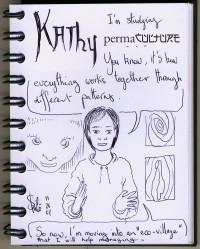 Kathy
I'm studying
permaCULTURE
You know, it's how
everything works together through
different patterns.
So now, I'm moving into an "eco-village"
that I will help managing.